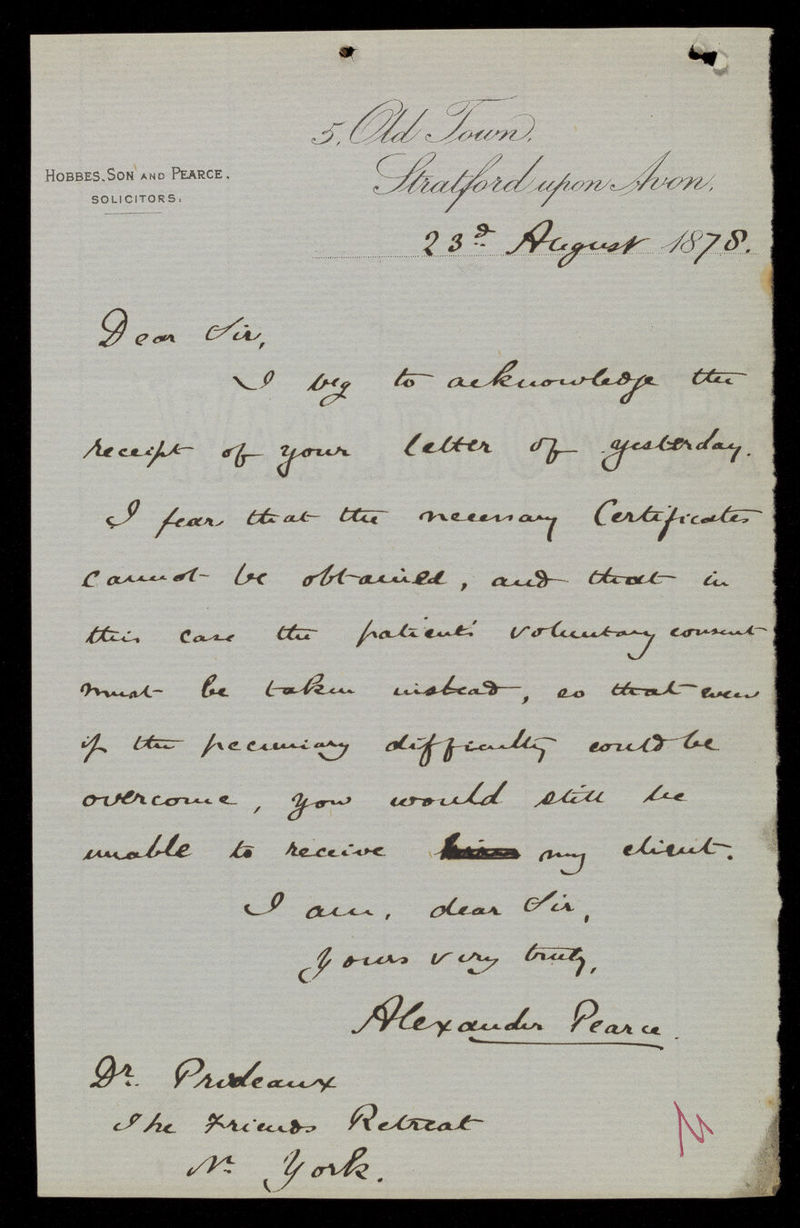 5, Old Town,
Stratford upon Avon,
HOBBES, SON AND PEARCE.
SOLICITORS.
23d August 1878.
Dear Sir,
I beg to acknowledge the
receipt of your letter of yesterday.
I fear that the necessary Certificates
cannot be obtained, and that in
this case the patient's voluntary consent
must be taken instead, so that even
if the pecuniary difficulty could be
overcome, you would still be
unable to receive my client.
I am, dear Sir,
Yours very truly,
Alexander Pearce.
Dr. Prideaux
The Friends Retreat
Nr York.